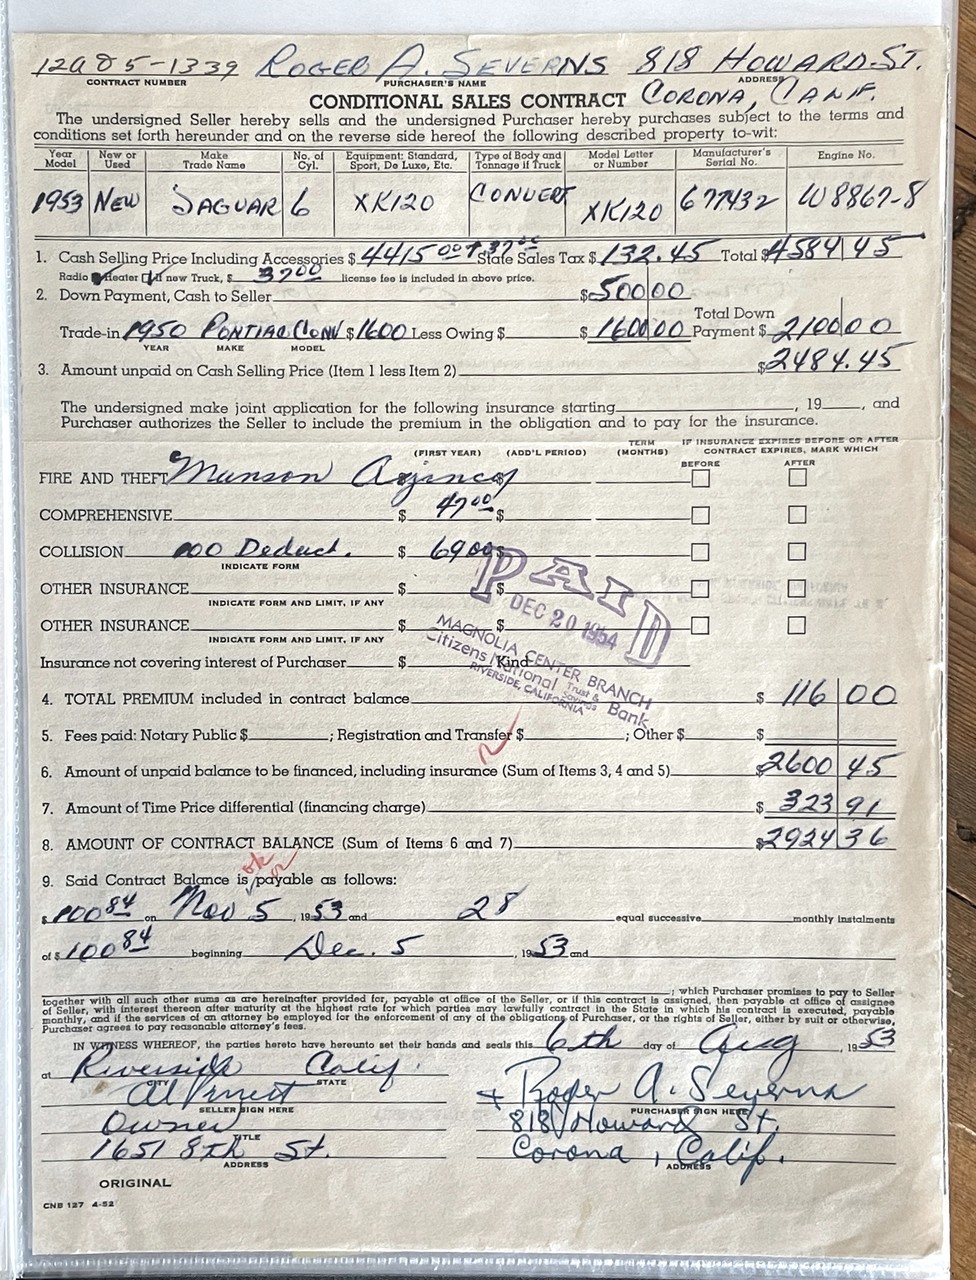 12a85-1339 ROGER A. SEVERNS 818 HOWARD ST.
CONTRACT NUMBER PURCHASER'S NAME ADDRESS
CONDITIONAL SALES CONTRACT CORONA, CALIF.
The undersigned Seller hereby sells and the undersigned Purchaser hereby purchases subject to the terms and
conditions set forth hereunder and on the reverse side hereof the following described property to-wit:
Year Model New or Used Make Trade Name No. of Cyl. Equipment: Standard, Sport, De Luxe, Etc. Type of Body and Tonnage if Truck Model Letter or Number Manufacturer's Serial No. Engine No.
1953 NEW JAGUAR 6 XK120 CONVERT XK120 677432 W8867-8
1. Cash Selling Price Including Accessories $ 4415.00 + 37.00 State Sales Tax $ 132.45 Total $ 4584 45
Radio Heater If new Truck, $ 37.00 license fee is included in above price.
2. Down Payment, Cash to Seller $ 500 00
Trade-in 1950 PONTIAC CONV $ 1600 Less Owing $ $ 1600 00 Total Down Payment $ 2100 00
YEAR MAKE MODEL
3. Amount unpaid on Cash Selling Price (Item 1 less Item 2) $ 2484.45
The undersigned make joint application for the following insurance starting , 19 , and
Purchaser authorizes the Seller to include the premium in the obligation and to pay for the insurance.
(FIRST YEAR) (ADD'L PERIOD) TERM (MONTHS) IF INSURANCE EXPIRES BEFORE OR AFTER CONTRACT EXPIRES, MARK WHICH
BEFORE AFTER
FIRE AND THEFT Munson Agincy $
COMPREHENSIVE $ 47 00 $
COLLISION 100 Deduct. $ 69 00 $
INDICATE FORM
OTHER INSURANCE $ $
INDICATE FORM AND LIMIT, IF ANY
OTHER INSURANCE $ $
INDICATE FORM AND LIMIT, IF ANY
PAID
DEC 20 1954
MAGNOLIA CENTER BRANCH
Citizens National Trust & Savings Bank
RIVERSIDE, CALIFORNIA
Insurance not covering interest of Purchaser $ Kind
4. TOTAL PREMIUM included in contract balance $ 116 00
5. Fees paid: Notary Public $ ; Registration and Transfer $ ; Other $ $
6. Amount of unpaid balance to be financed, including insurance (Sum of Items 3, 4 and 5) $ 2600 45
7. Amount of Time Price differential (financing charge) $ 323 91
8. AMOUNT OF CONTRACT BALANCE (Sum of Items 6 and 7) $ 2924 36
ok
9. Said Contract Balance is payable as follows:
$ 100 84 on Nov 5, 1953 and 28 equal successive monthly instalments
of $ 100 84 beginning Dec. 5, 1953 and
; which Purchaser promises to pay to Seller
together with all such other sums as are hereinafter provided for, payable at office of the Seller, or if this contract is assigned, then payable at office of assignee
of Seller, with interest thereon after maturity at the highest rate for which parties may lawfully contract in the State in which his contract is executed, payable
monthly, and if the services of an attorney be employed for the enforcement of any of the obligations of Purchaser, or the rights of Seller, either by suit or otherwise,
Purchaser agrees to pay reasonable attorney's fees.
IN WITNESS WHEREOF, the parties hereto have hereunto set their hands and seals this 6th day of Aug, 1953
at Riverside Calif.
CITY STATE
Al Ernest Roger A. Severns
SELLER SIGN HERE PURCHASER SIGN HERE
Owner 818 Howard St.
TITLE
1651 8th St. Corona, Calif.
ADDRESS ADDRESS
ORIGINAL
CNB 127 4-52